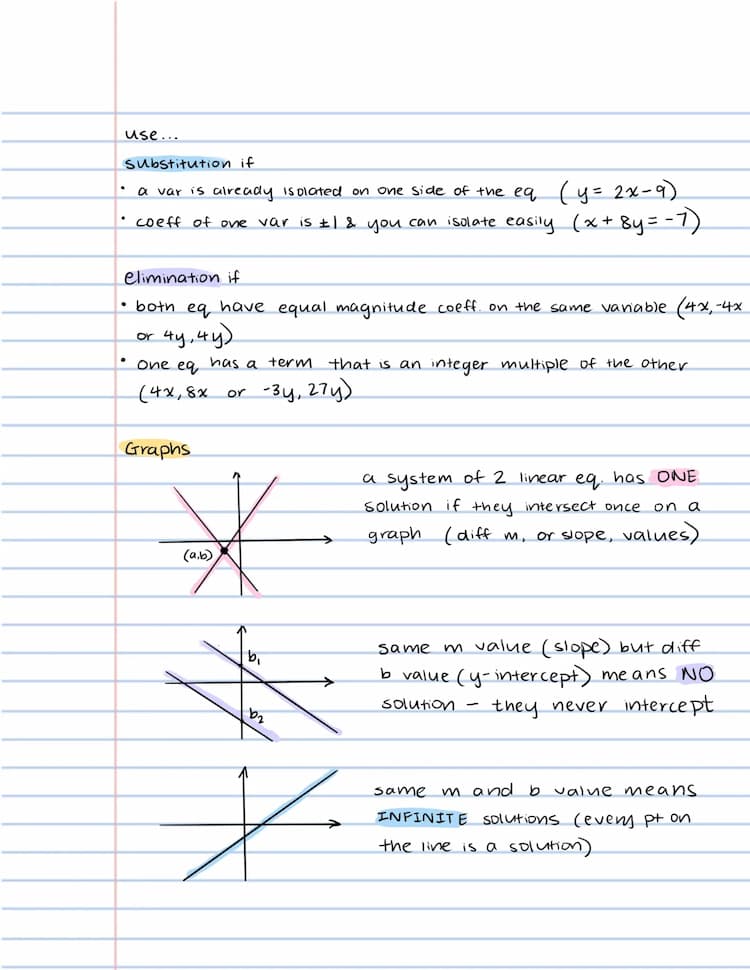 use...
substitution if
• a var is already isolated on one side of the eq (y = 2x-9)
• coeff of one var is ±1 & you can isolate easily (x + 8y = -7)
elimination if
• both eq have equal magnitude coeff. on the same variable (4x, -4x
or 4y, 4y)
• one eq has a term that is an integer multiple of the other
(4x, 8x or -3y, 27y)
Graphs
a system of 2 linear eq. has ONE
solution if they intersect once on a
graph (diff m, or slope, values)
(a,b)
same m value (slope) but diff
b value (y-intercept) means NO
solution - they never intercept
b₁
b₂
same m and b value means
INFINITE solutions (every pt on
the line is a solution)